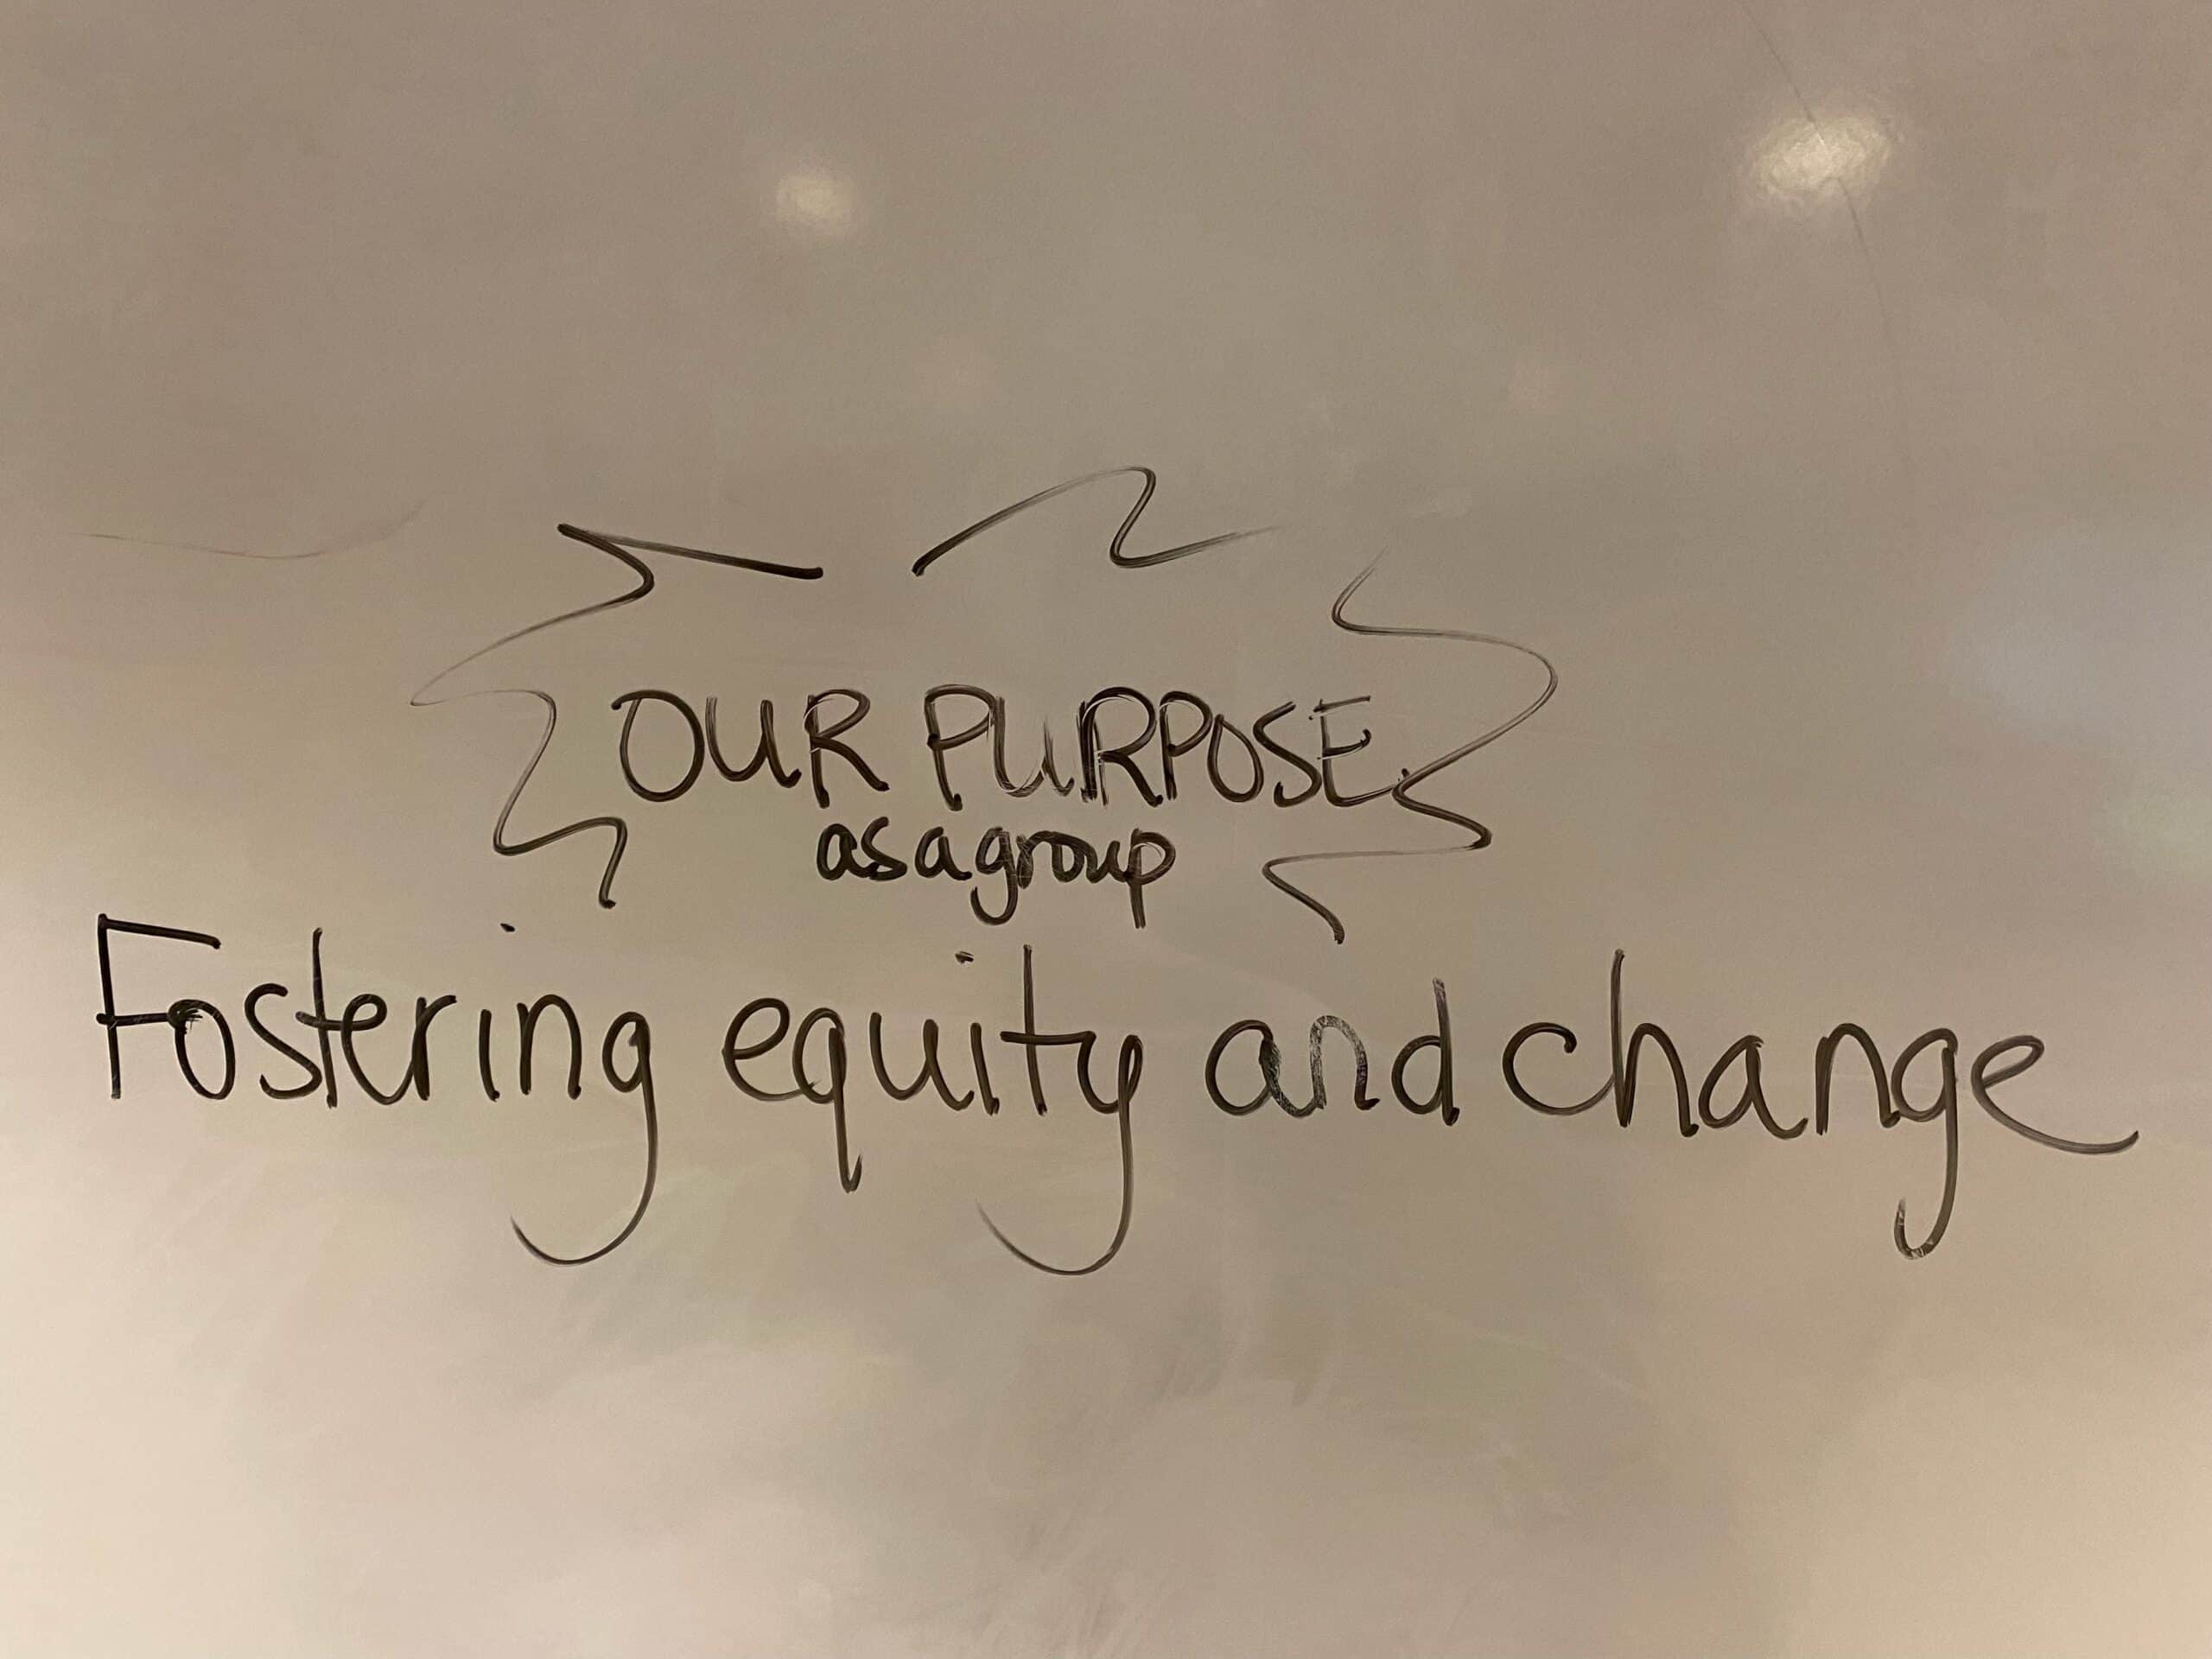 OUR PURPOSE
as a group
Fostering equity and change